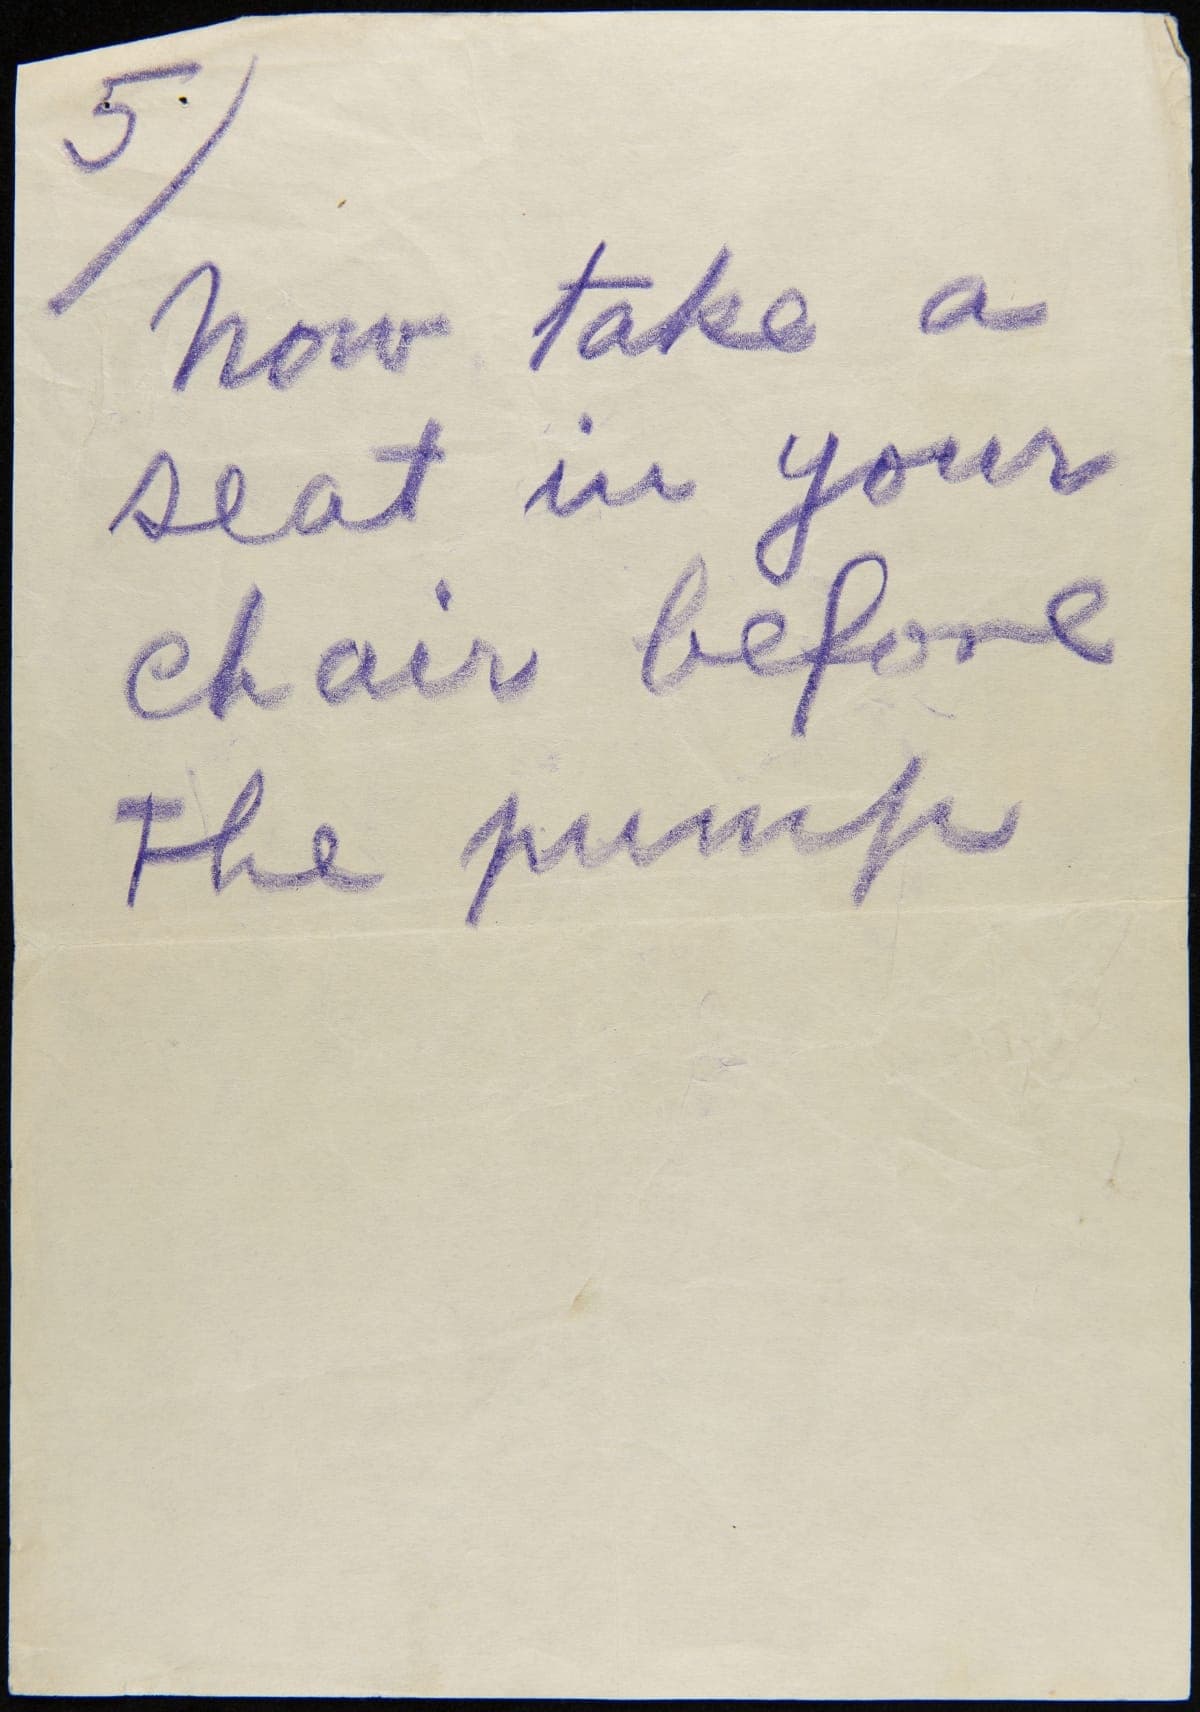 5/
Now take a
seat in your
chair before
the pump